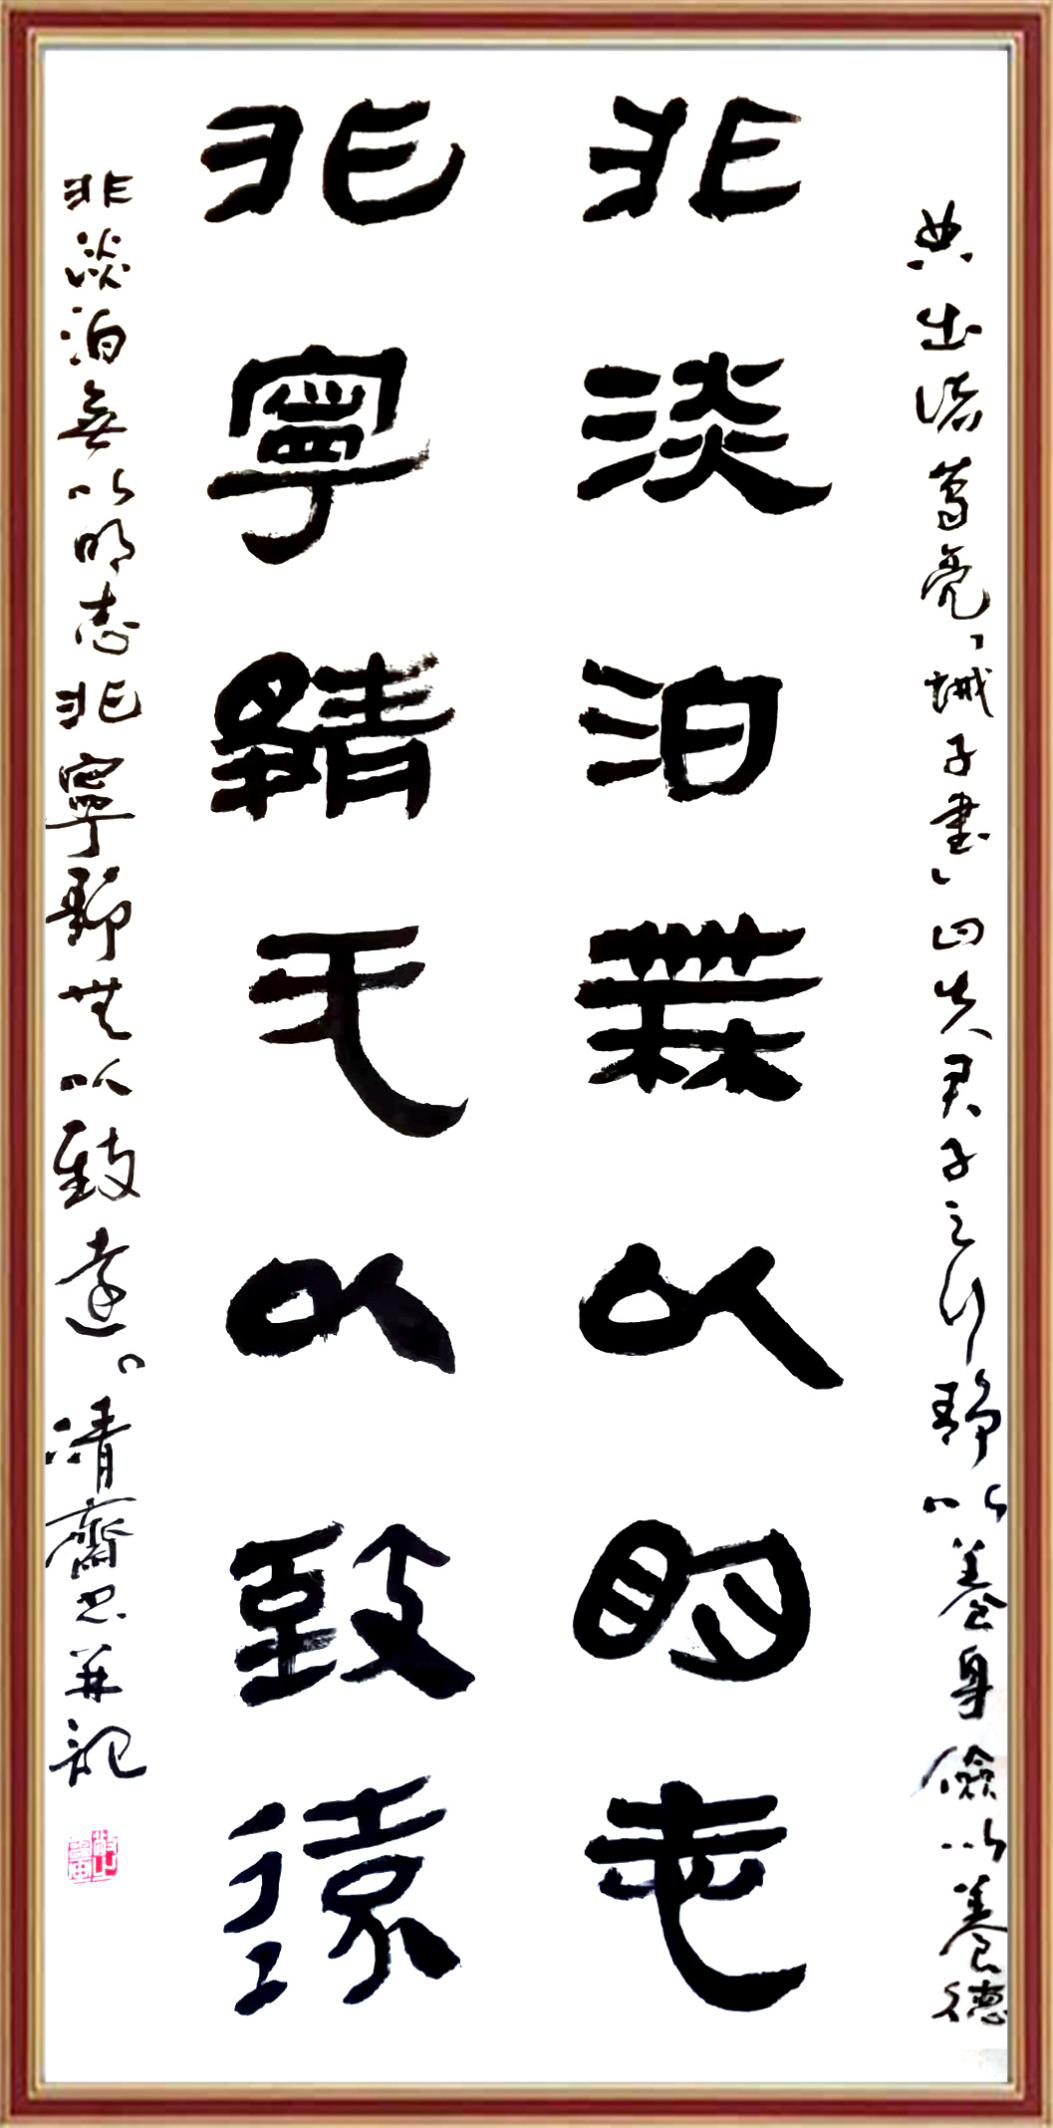 典出诸葛亮「诫子書」曰夫君子之行静以養身儉以養德
非淡泊無以明志
非寧靜无以致遠
非淡泊無以明志非寧静無以致遠。清齋书并記